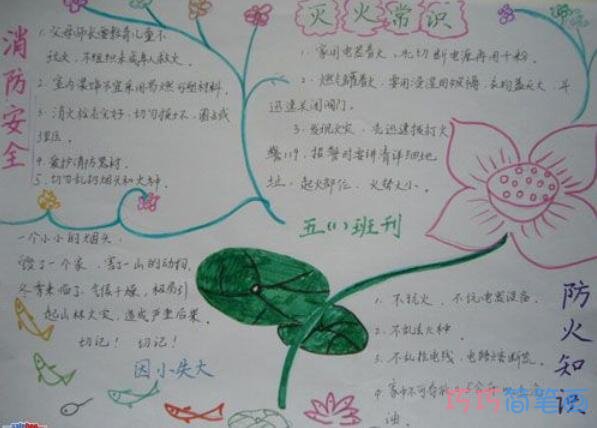 消防安全
1. 父母师长要教育儿童不
玩火，不组织未成年人救火。
2. 室内装饰不宜采用易燃可塑材料。
3. 消火栓
埋压。
4. 爱护消防器材
5. 切勿乱扔烟头和火种。
灭火常识
1. 家用电器着火，先切断电源再用干粉。
2. 燃气罐着火，要用浸湿的被褥、衣物盖灭火，并
迅速关闭阀门。
3. 发现火灾，先迅速拨打火
警119，报警时要讲清详细地
址、起火部位、火势大小。
五(1)班刊
一个小小的烟头，
毁了一个家，害了一山的动物，
冬季来临了，气候干燥，极易引
起山林火灾，造成严重后果。
切记！ 切记！
因小失大
防火知识
1. 不玩火、不玩电器设备。
2. 不乱丢火种。
3. 不乱拉电线，
4. 家中不可存放
油
巧巧简笔画